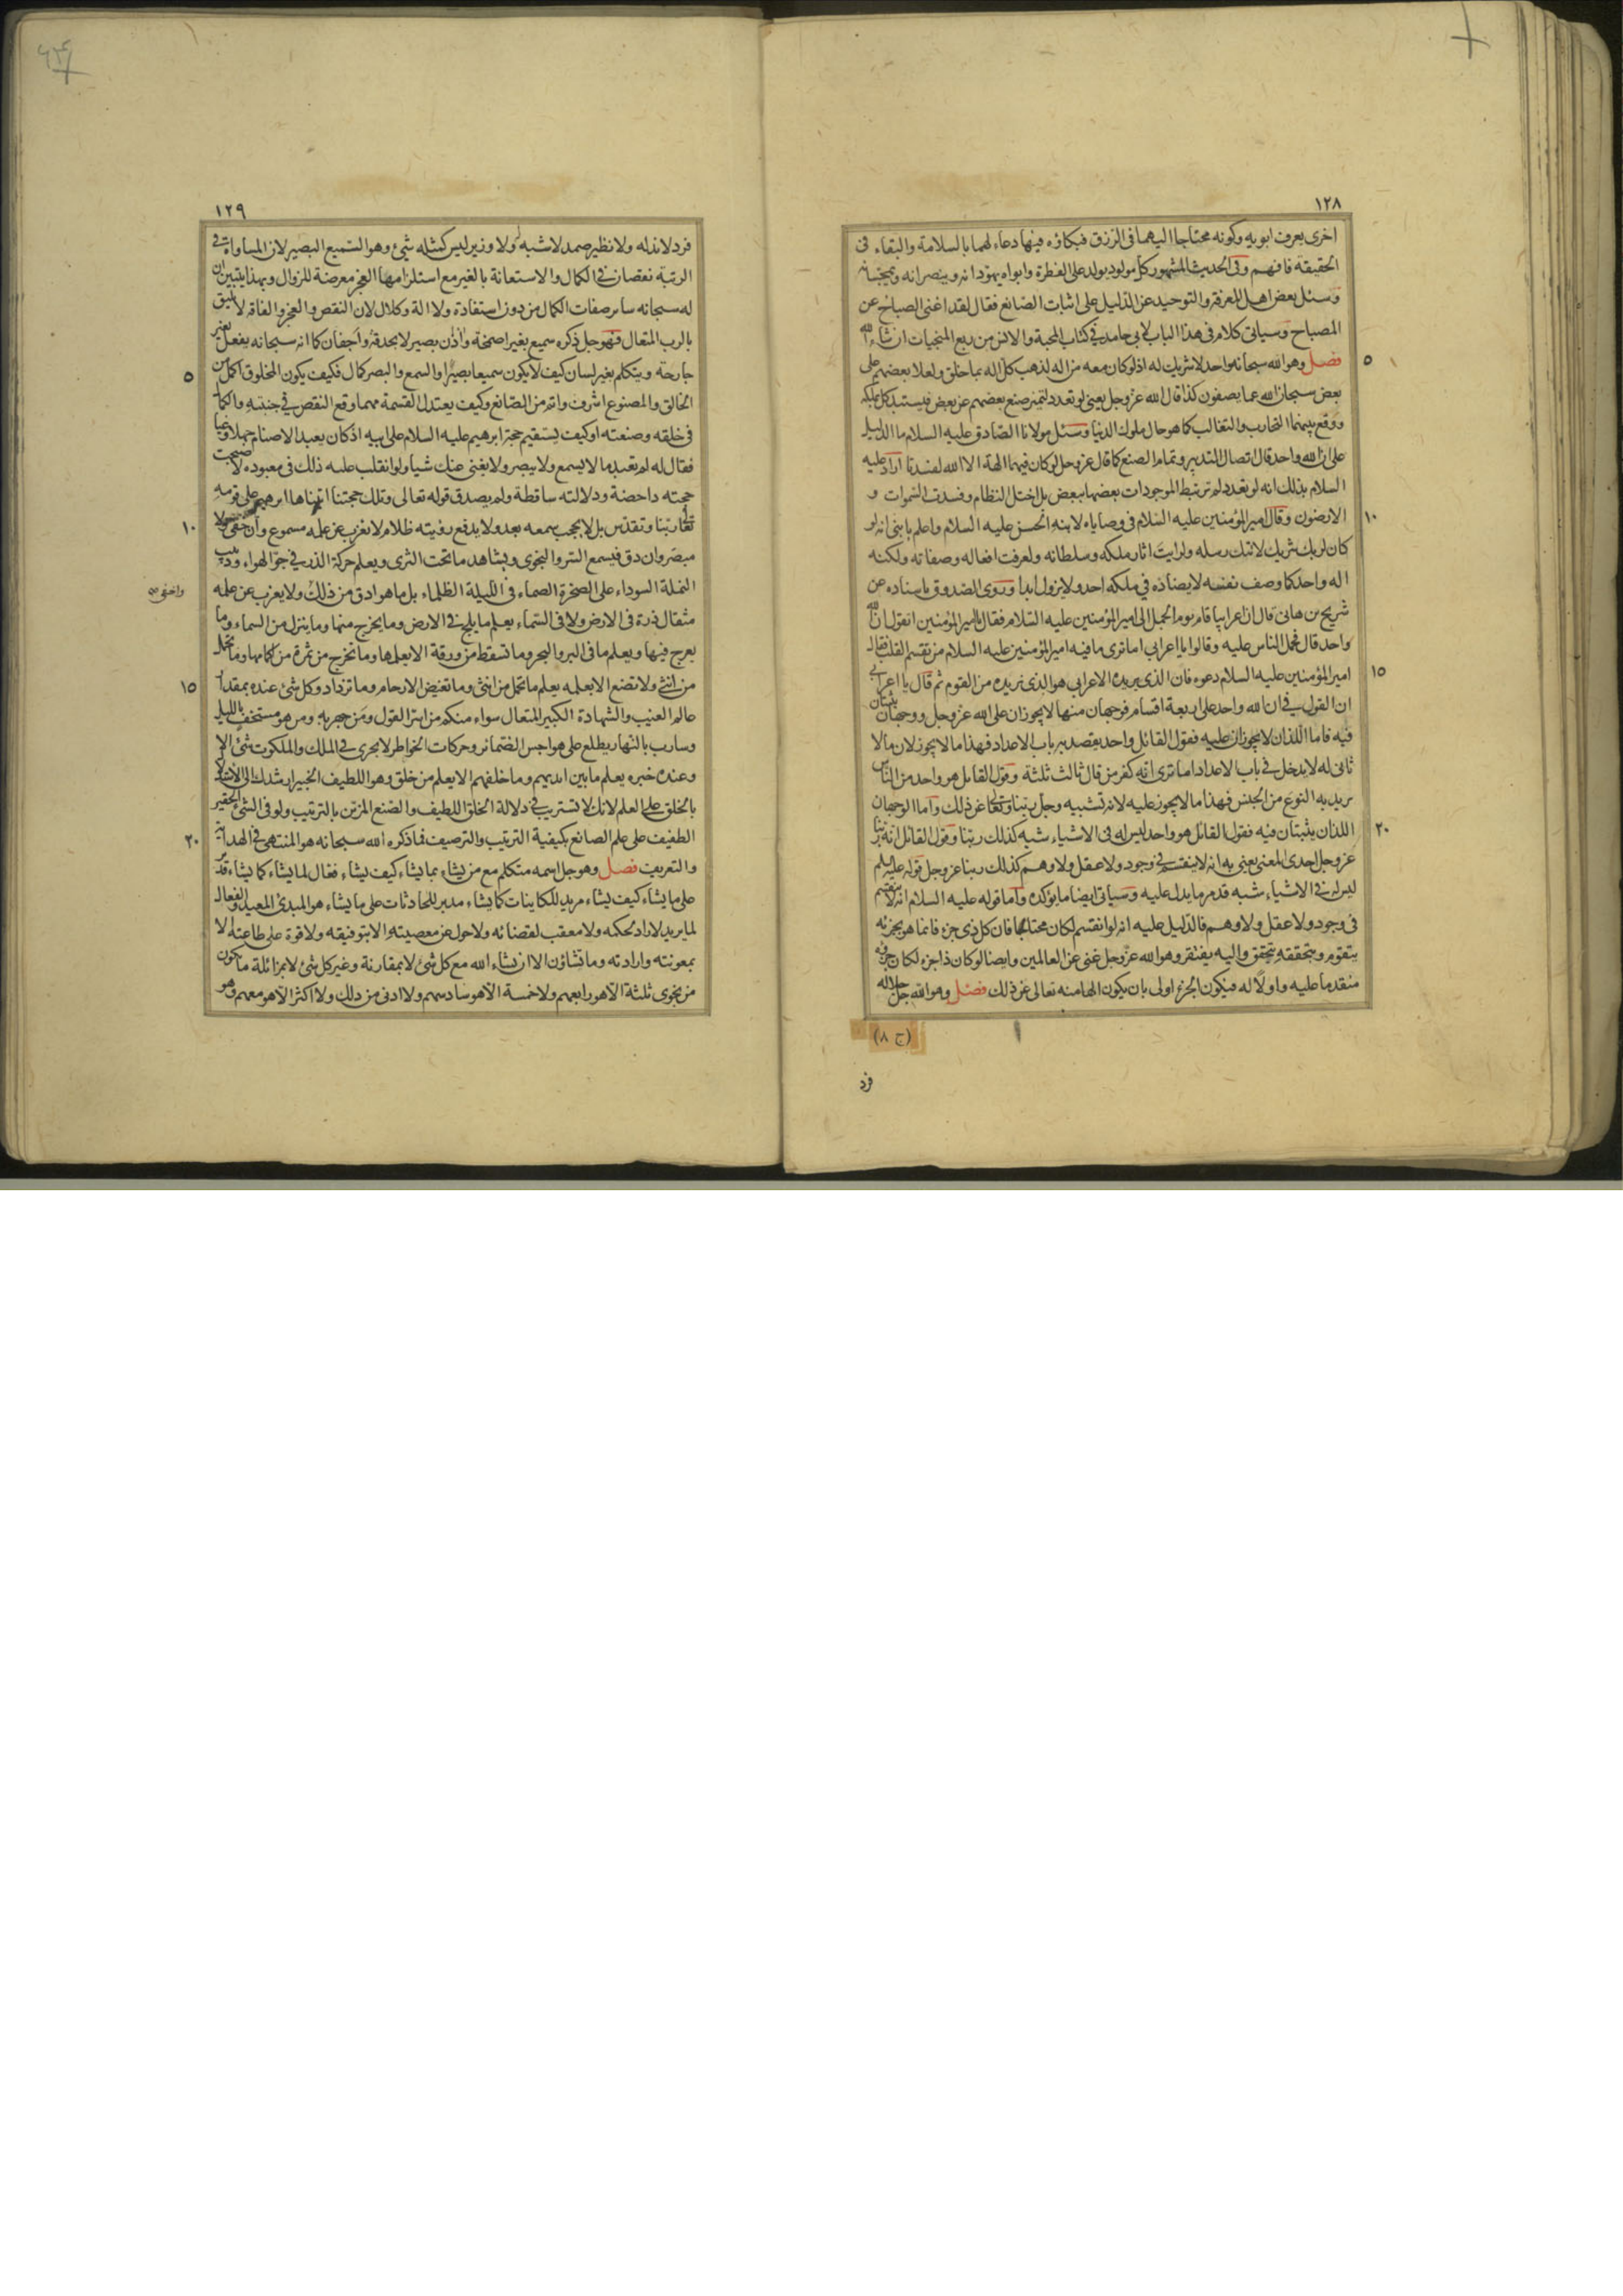 ١٢٨
اخرى يعرف ابويه وكونه محتاجا اليهما فى الرزق فبكاؤه فيها دعاء لهما بالسلامة والبقاء فى
الحقيقة فافهم وفى الحديث المشهور كل مولود يولد على الفطرة وابواه يهودانه وينصرانه ويمجسانه
وسئل بعض اهل المعرفة والتوحيد عن الدليل على اثبات الصانع فقال لقد اغنى الصباح عن
المصباح وسياتى كلام فى هذا الباب لابى حامد فى كتاب المحبة والانس من ربع المنجيات ان شاء الله
٥
فصل وهو الله سبحانه واحد لا شريك له اذ لو كان معه من اله لذهب كل اله بما خلق ولعلا بعضهم على
بعض سبحان الله عما يصفون كذا قال الله عز وجل يعنى لو تعدد لتميز صنع بعضهم عن بعض فيستبد كل بملكه
ووقع بينهما التحارب والتغالب كما هو حال ملوك الدنيا وسئل مولانا الصادق عليه السلام ما الدليل
على ان الله واحد قال اتصال التدبير وتمام الصنع كما قال عز وجل لو كان فيهما الهة الا الله لفسدتا اراد عليه
السلام بذلك انه لو تعدد لم ترتبط الموجودات بعضها ببعض بل اختل النظام وفسدت السموات و
١٠
الارضون وقال امير المؤمنين عليه السلام فى وصاياه لابنه الحسن عليه السلام واعلم يا بنى انه لو
كان لربك شريك لاتتك رسله ولرايت اثار ملكه وسلطانه ولعرفت افعاله وصفاته ولكنه
اله واحد كما وصف نفسه لا يضاده فى ملكه احد ولا يزول ابدا وروى الصدوق باسناده عن
شريح بن هانى قال ان اعرابيا قام يوم الجمل الى امير المؤمنين عليه السلام فقال يا امير المؤمنين اتقول ان الله
واحد قال فحمل الناس عليه وقالوا يا اعرابي اما ترى ما فيه امير المؤمنين عليه السلام من تقسم القلب فقال
١٥
امير المؤمنين عليه السلام دعوه فان الذى يريده الاعرابى هو الذى نريده من القوم ثم قال يا اعرابى
ان القول فى ان الله واحد على اربعة اقسام فوجهان منها لا يجوزان على الله عز وجل ووجهان يثبتان
فيه فاما اللذان لا يجوزان عليه فقول القائل واحد يقصد به باب الاعداد فهذا ما لا يجوز لان ما لا
ثانى له لا يدخل فى باب الاعداد اما ترى انه كفر من قال ثالث ثلثة وقول القائل هو واحد من الناس
يريد به النوع من الجنس فهذا ما لا يجوز عليه لانه تشبيه وجل ربنا وتعالى عن ذلك واما الوجهان
٢٠
اللذان يثبتان فيه فقول القائل هو واحد ليس له فى الاشياء شبه كذلك ربنا وقول القائل انه ربنا
عز وجل احدى المعنى يعنى به انه لا ينقسم فى وجود ولا عقل ولا وهم كذلك ربنا عز وجل قوله عليه السلم
ليس له فى الاشياء شبه قد مر ما يدل عليه وسياتى ايضا ما يؤكده واما قوله عليه السلام انه لا ينقسم
فى وجود ولا عقل ولا وهم فالدليل عليه انه لو انقسم لكان محتاجا فان كل ذى جزء فانما هو بجزئه
يتقوم وبتحققه يتحقق واليه يفتقر وهو الله عز وجل غنى عن العالمين وايضا لو كان ذا جزء لكان جزؤه
متقدما عليه واولا له فيكون الجزء اولى بان يكون الها منه تعالى عن ذلك فصل وهو الله جل جلاله
(ج ٨)
فرد
١٢٩
فرد لا ند له ولا نظير صمد لا شبه له ولا وزير ليس كمثله شئ وهو السميع البصير لان المساواة فى
الرتبة نقصان فى الكمال والاستعانة بالغير مع استلزامها العجز معرضة للزوال وبهذا يتبين ان
له سبحانه سائر صفات الكمال من دون استفادة ولا الة وكلال لان النقص والعجز والفاقة لا يليق
بالرب المتعال فهو جل ذكره سميع بغير اصمخة واذن بصير لا بحدقة واجفان كما انه سبحانه يفعل بغير
٥
جارحة ويتكلم بغير لسان كيف لا يكون سميعا بصيرا والسمع والبصر كمال فكيف يكون المخلوق اكمل من
الخالق والمصنوع اشرف واتم من الصانع وكيف يعتدل القسمة مهما وقع النقص فى جنبته والكمال
فى خلقه وصنعته او كيف يستقيم حجة ابرهيم عليه السلام على ابيه اذ كان يعبد الاصنام جهلا وغيا
فقال له لم تعبد ما لا يسمع ولا يبصر ولا يغنى عنك شيا ولو انقلب عليه ذلك فى معبوده لاصبحت
حجته داحضة ودلالته ساقطة ولم يصدق قوله تعالى وتلك حجتنا اتيناها ابرهيم على قومه
١٠
تعالى ربنا وتقدس بل لا يحجب سمعه بعد ولا يدفع رؤيته ظلام لا يغرب عن علمه مسموع وان خفى ولا
مبصر وان دق فيسمع السر والنجوى ويشاهد ما تحت الثرى ويعلم حركة الذر فى جو الهواء ودبيب
النملة السوداء على الصخرة الصماء فى الليلة الظلماء بل ما هو ادق من ذلك ولا يعزب عن علمه
واخفى
مثقال ذرة فى الارض ولا فى السماء يعلم ما يلج فى الارض وما يخرج منها وما ينزل من السماء وما
يعرج فيها ويعلم ما فى البر والبحر وما تسقط من ورقة الا يعلمها وما تخرج من ثمرة من اكمامها وما تحمل
١٥
من انثى ولا تضع الا بعلمه يعلم ما تحمل من انثى وما تغيض الارحام وما تزداد وكل شئ عنده بمقدار
عالم الغيب والشهادة الكبير المتعال سواء منكم من اسر القول ومن جهر به ومن هو مستخف بالليل
وسارب بالنهار يطلع على هواجس الضمائر وحركات الخواطر لا يجرى فى الملك والملكوت شئ الا
وعنده خبره يعلم ما بين ايديهم وما خلفهم الا يعلم من خلق وهو اللطيف الخبير ارشدك الى الاستدلال
بالخلق على العلم لانك لا تستريب فى دلالة الخلق اللطيف والصنع المزين بالترتيب ولو فى الشئ الحقير
٢٠
الطفيف على علم الصانع بكيفية الترتيب والترصيف فما ذكره الله سبحانه هو المنتهى فى الهداية
والتعريف فصل وهو جل اسمه متكلم مع من يشاء بما يشاء كيف يشاء فعال لما يشاء كما يشاء قدر
على ما يشاء كيف يشاء مريد للكاينات كما يشاء مدبر للحادثات على ما يشاء هو المبدئ المعيد والفعال
لما يريد لا راد لحكمه ولا معقب لقضائه ولا حول عن معصيته الا بتوفيقه ولا قوة على طاعته الا
بمعونته وارادته وما تشاؤن الا ان يشاء الله مع كل شئ لا بمقارنة وغير كل شئ لا بمزائلة ما يكون
من نجوى ثلثة الا هو رابعهم ولا خمسة الا هو سادسهم ولا ادنى من ذلك ولا اكثر الا هو معهم وهو